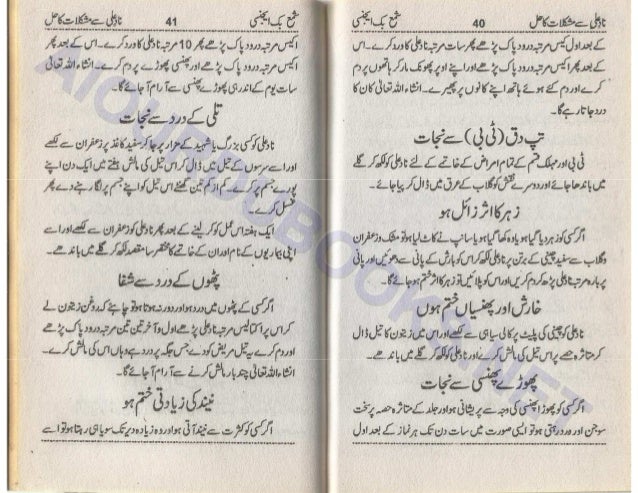 نادِ علی سے مشکلات کا حل 40 شمع بک ایجنسی
کے بعد اول اکیس مرتبہ درود پاک پڑھے پھر سات مرتبہ نادِ علی کا ورد کرے۔ اس
کے بعد پھر اکیس مرتبہ درود پاک پڑھے اور اپنے اوپر پھونک مار کر ہاتھوں پر دم
کرے اور دم کئے ہوئے ہاتھ اپنے کانوں پر پھیرے۔ انشاء اللہ تعالیٰ کان کا
درد جاتا رہے گا۔
تپ دق (ٹی بی) سے نجات
ٹی بی اور مہلک قسم کے تمام امراض کے خاتمے کے لئے نادِ علی کو لکھ کر گلے
میں باندھا جائے اور دوسرے نقش کو گلاب کے عرق میں ڈال کر پیا جائے۔
زہر کا اثر زائل ہو
اگر کسی کو زہر دیا گیا ہو یا وہ کھا گیا ہو یا سانپ نے کاٹ لیا ہو تو مشک و زعفران
و گلاب سے سفید چینی کے برتن پر نادِ علی لکھ کر اس کو بارش کے پانی سے دھوئیں اور پانی
پر بارہ مرتبہ نادِ علی پڑھ کر دم کریں اور اس کو پلائیں تو زہر کا اثر ختم ہو جائے گا۔
خارش اور پھنسیاں ختم ہوں
نادِ علی کو چینی کی پلیٹ پر کالی سیاہی سے لکھے اور اس میں زیتون کا تیل ڈال
کر متاثرہ حصے پر اس تیل کی مالش کرے اور نادِ علی کو لکھ کر گلے میں باندھے۔
پھوڑے پھنسی سے نجات
اگر کسی کو پھوڑا پھنسی کی وجہ سے پریشانی ہو اور جلد کے متاثرہ حصہ پر سخت
سوجن اور درد رہتی ہو تو ایسی صورت میں سات دن تک ہر نماز کے بعد اول
نادِ علی سے مشکلات کا حل 41 شمع بک ایجنسی
اکیس مرتبہ درود پاک پڑھے پھر 10 مرتبہ نادِ علی کا ورد کرے۔ اس کے بعد پھر
اکیس مرتبہ درود پاک پڑھے اور پھنسی پھوڑے پر دم کرے۔ انشاء اللہ تعالیٰ
سات یوم کے اندر ہی پھوڑے پھنسی سے آرام آ جائے گا۔
تلی کے درد سے نجات
نادِ علی کو کسی بزرگ یا شہید کے مزار پر جا کر سفید کاغذ پر زعفران سے لکھے
اور اسے سرسوں کے تیل میں ڈال کر اس تیل کی مالش ہفتے میں ایک دن اپنے
پورے جسم پر کرے۔ کم از کم تین گھنٹے اس تیل کو اپنے جسم پر لگا رہنے دے پھر
غسل کرے۔
ایک ہفتہ اس عمل کو کر لینے کے بعد پھر نادِ علی کو زعفران سے لکھے اور اسے
اپنی بیماریوں کے نام اور ان کے خاتمے کا مختصر سا مقصد لکھ کر گلے میں باندھے۔
پٹھوں کے درد سے شفا
اگر کسی کے پٹھوں میں درد ہو اور دور نہ ہوتا ہو تو چاہئے کہ روغن زیتون لے
کر اس پر اکتالیس مرتبہ نادِ علی پڑھے اول و آخر تین تین مرتبہ درود پاک پڑھے
اور دم کرے یہ تیل مریض کو دے جس جگہ پر درد رہے وہاں اس کی مالش کرے۔
انشاء اللہ تعالیٰ چند بار مالش کرنے سے آرام آ جائے گا۔
نیند کی زیادتی ختم ہو
اگر کسی کو کثرت سے نیند آتی ہو اور وہ زیادہ دیر تک سویا ہی رہتا ہو تو اسے